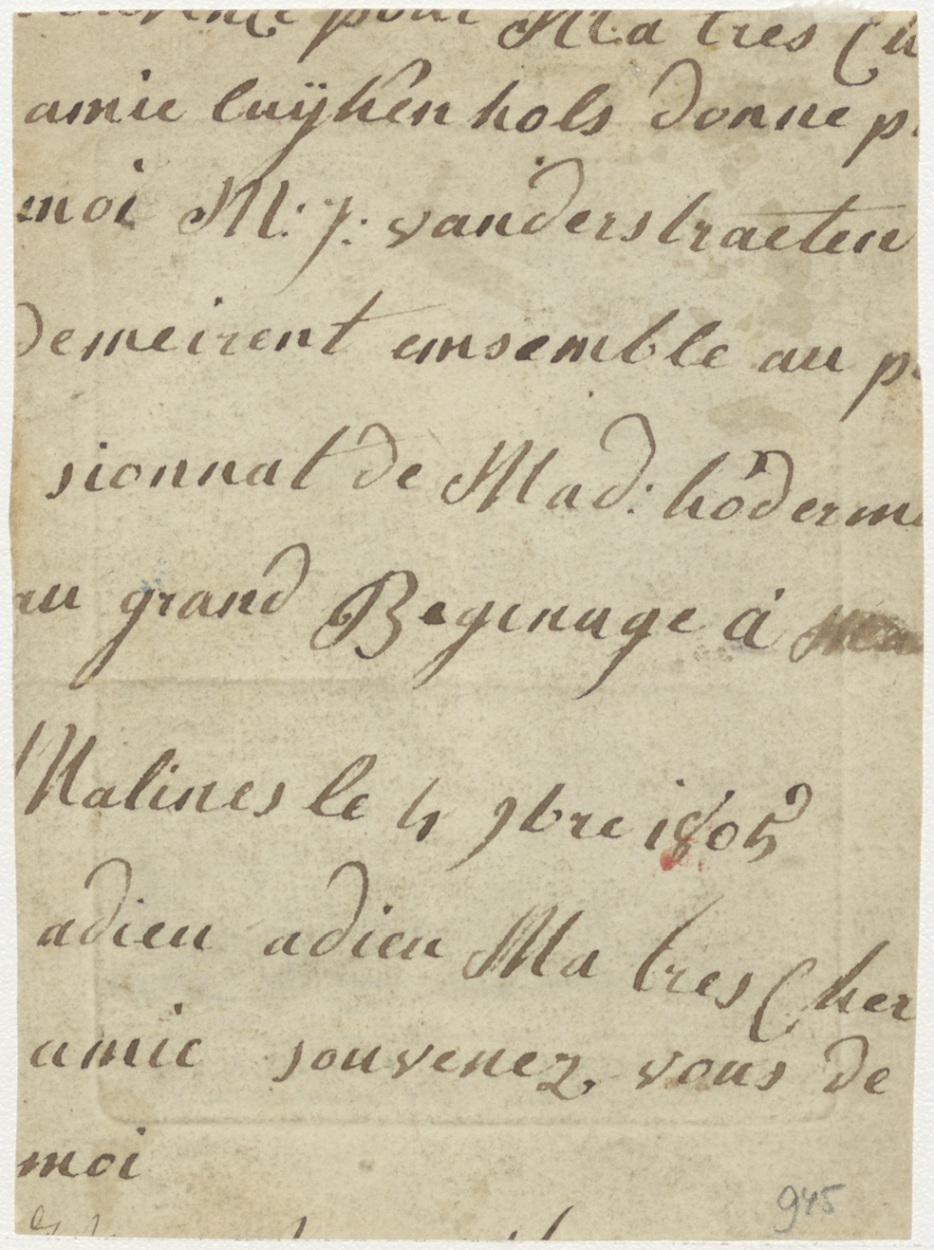 pour Ma tres Ch
amie luÿkën hols donne p
moi M: j: vanderstraeten
Demeirent ensemble au p
sionnat de Mad: hoderm
au grand Begenage á
Malines le 4 9bre 1805
adieu adieu Ma tres Cher
amie souvenez vous de
moi
945